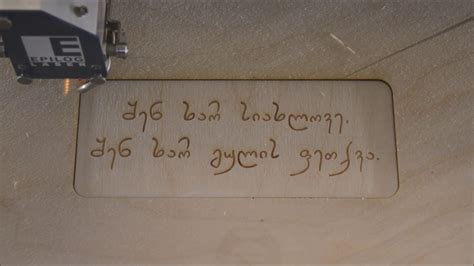 EPILOG
LASER
შენ ხარ სიახლოვე.
შენ ხარ გულის ფეთქვა.